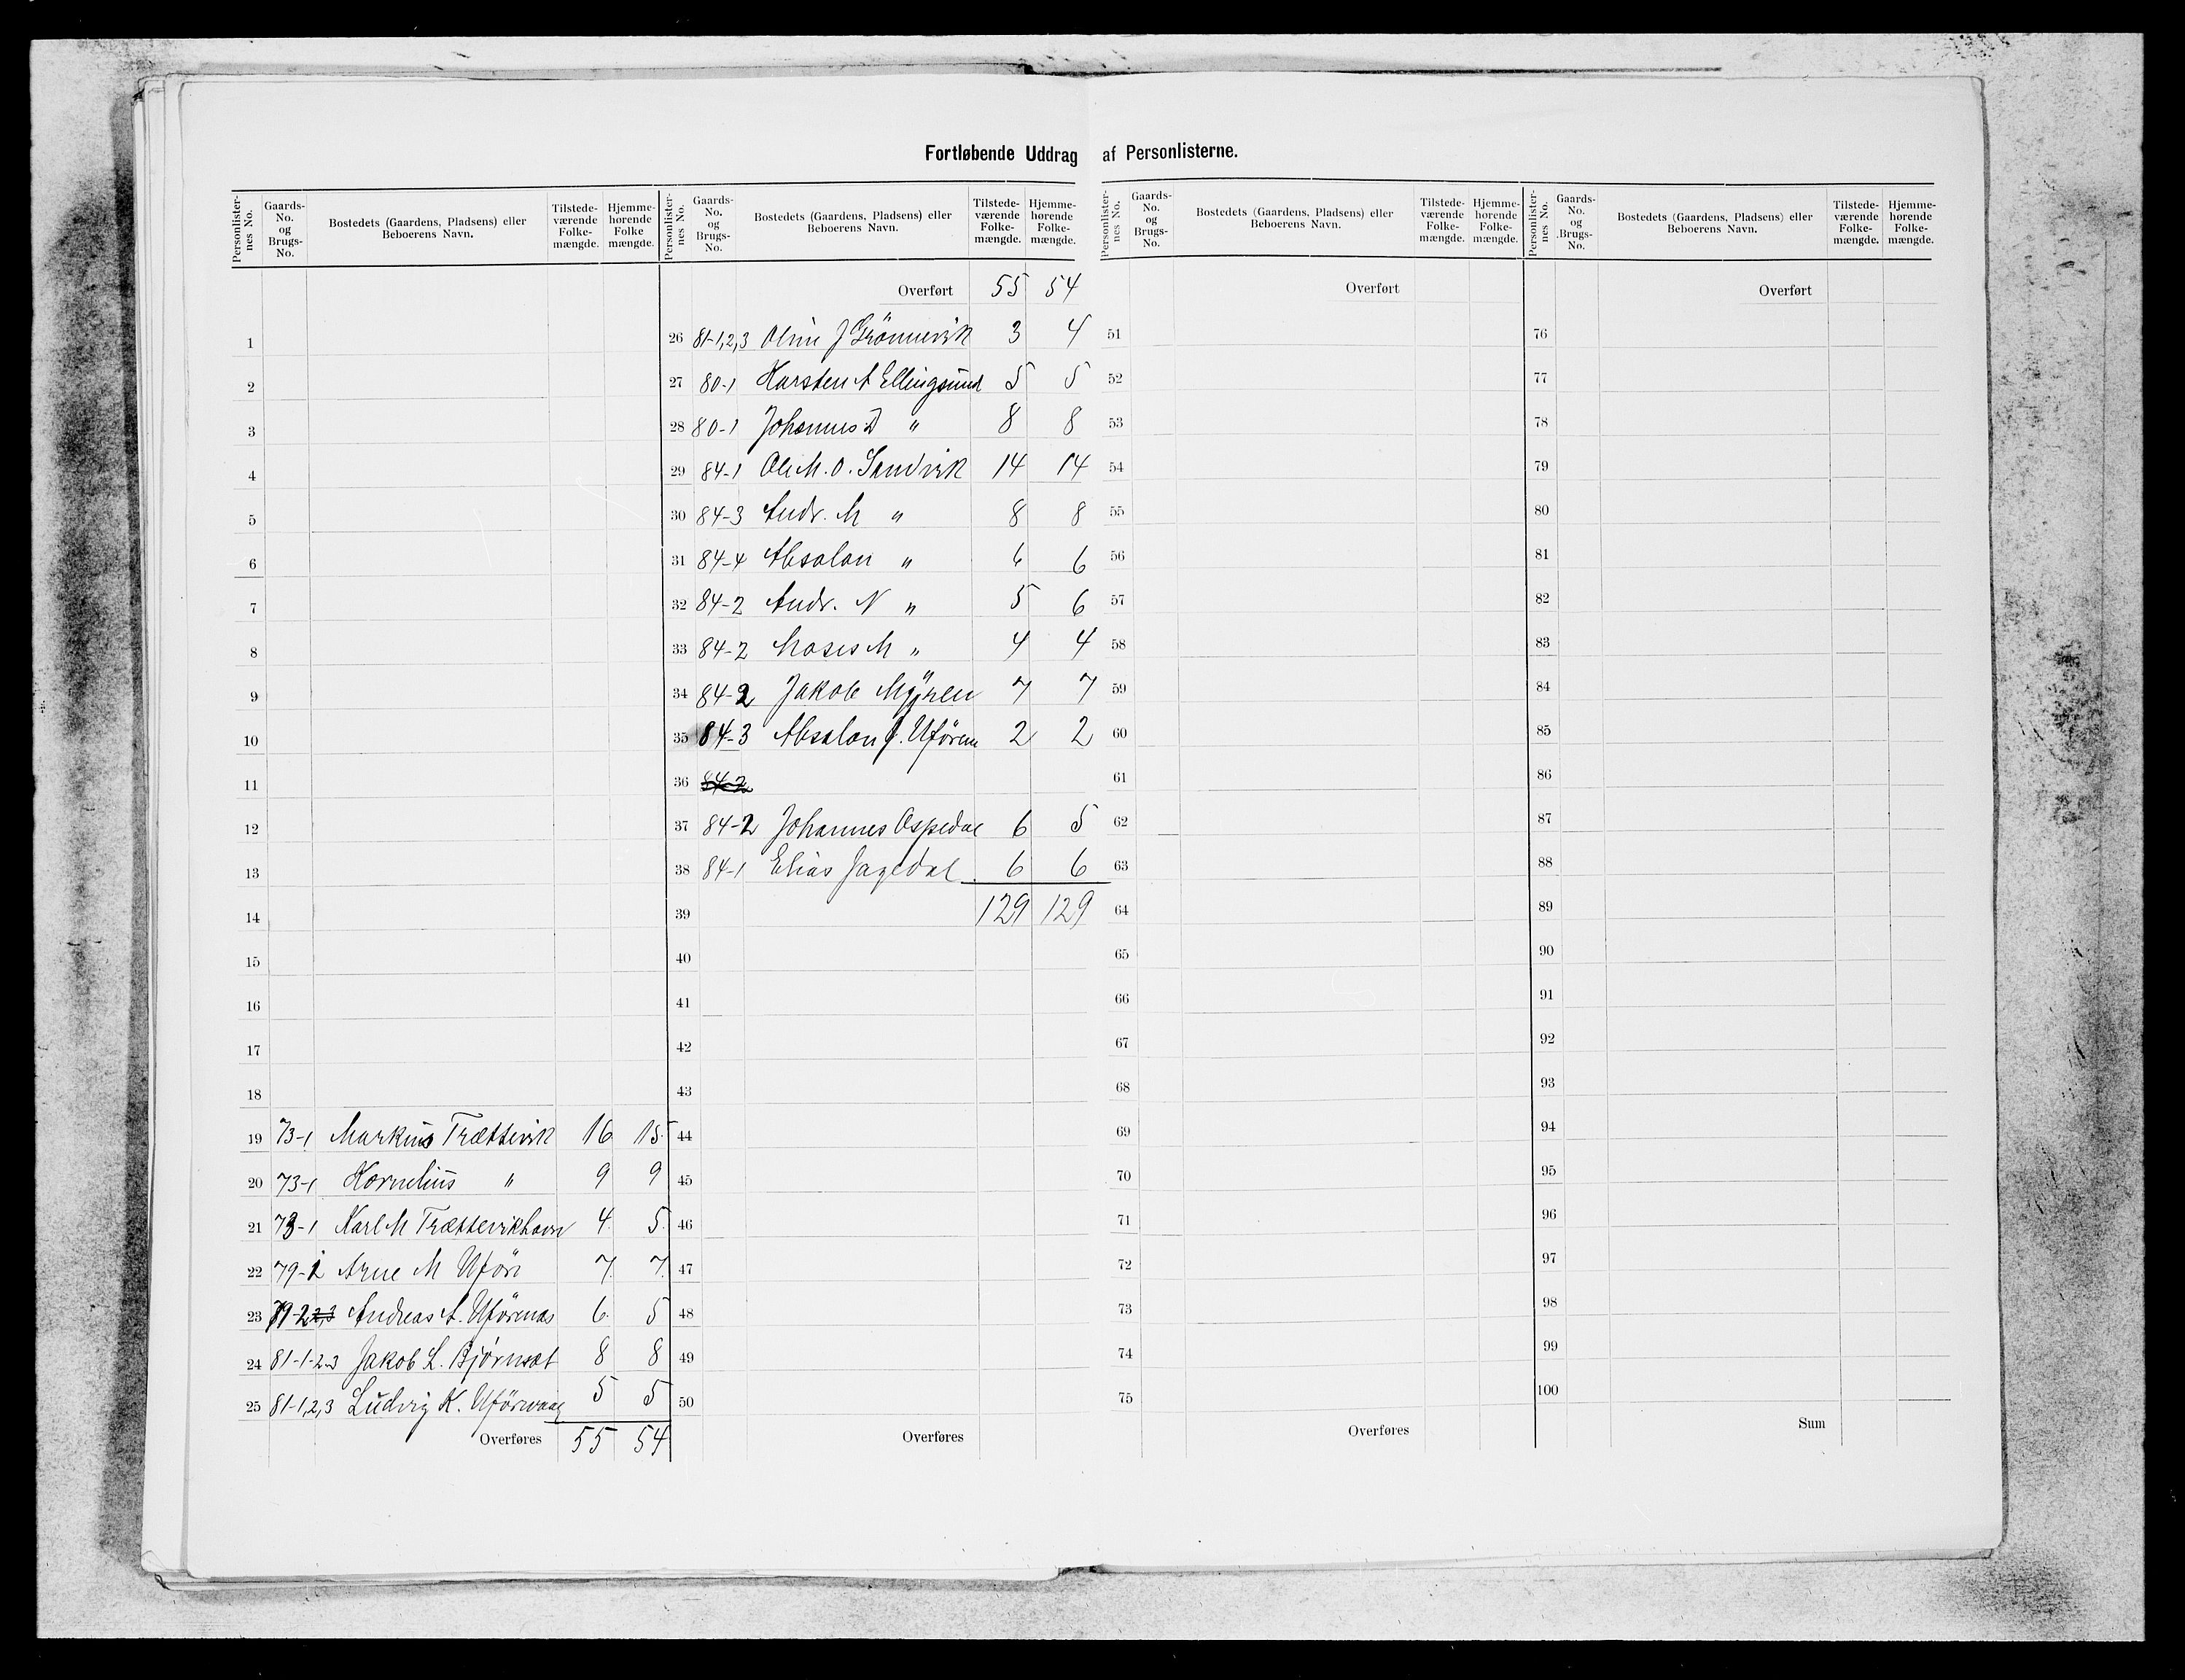 Fortløbende Uddrag af Personlisterne.
Personlisternes No. Gaards-No. og Brugs-No. Bostedets (Gaardens, Pladsens) eller Beboerens Navn. Tilstedeværende Folkemængde. Hjemmehørende Folkemængde.
1
2
3
4
5
6
7
8
9
10
11
12
13
14
15
16
17
18
19 73-1 Markus Trættevik 16 15
20 73-1 Kornelius " 9 9
21 73-1 Karl M Trættevikhavn 4 5
22 79-1 Arne M Uför 7 7
23 79-2 Andreas A. Uförenas 6 5
24 81-1-2-3 Jakob L. Björnset 8 8
25 81-1,2,3 Ludvig K. Uförvaag 5 5
Overføres 55 54
Personlisternes No. Gaards-No. og Brugs-No. Bostedets (Gaardens, Pladsens) eller Beboerens Navn. Tilstedeværende Folkemængde. Hjemmehørende Folkemængde.
Overført 55 54
26 81-1,2,3 Oline J Grönnevik 3 4
27 80-1 Karsten A Ellingsund 5 5
28 80-1 Johannes D " 8 8
29 84-1 Ole M. O. Sandvik 14 14
30 84-3 Andr. M " 8 8
31 84-4 Absalon " 6 6
32 84-2 Andr. N " 5 6
33 84-2 Moses M " 4 4
34 84-2 Jakob Myren 7 7
35 84-3 Absalon J. Ufören 2 2
36 84-2
37 84-2 Johannes Ospedal 6 5
38 84-1 Elias Jagedal 6 6
39 129 129
40
41
42
43
44
45
46
47
48
49
50
Overføres
Personlisternes No. Gaards-No. og Brugs-No. Bostedets (Gaardens, Pladsens) eller Beboerens Navn. Tilstedeværende Folkemængde. Hjemmehørende Folkemængde.
Overført
51
52
53
54
55
56
57
58
59
60
61
62
63
64
65
66
67
68
69
70
71
72
73
74
75
Overføres
Personlisternes No. Gaards-No. og Brugs-No. Bostedets (Gaardens, Pladsens) eller Beboerens Navn. Tilstedeværende Folkemængde. Hjemmehørende Folkemængde.
Overført
76
77
78
79
80
81
82
83
84
85
86
87
88
89
90
91
92
93
94
95
96
97
98
99
100
Sum